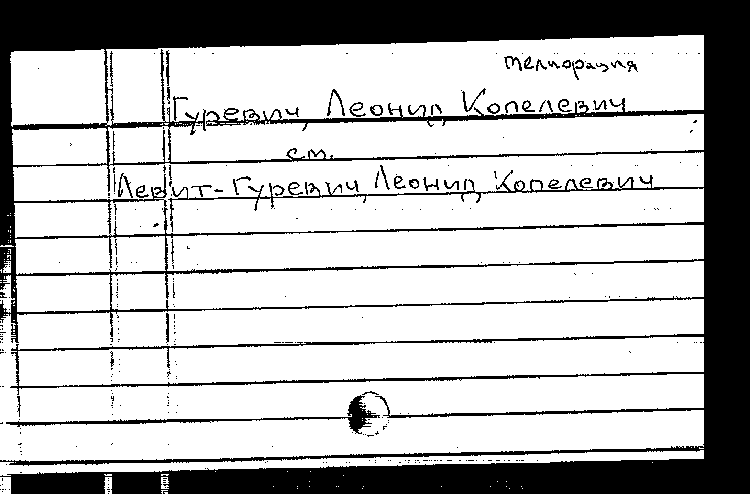 мелиорация
Гуревич, Леонид Копелевич
см.
Левит-Гуревич, Леонид Копелевич